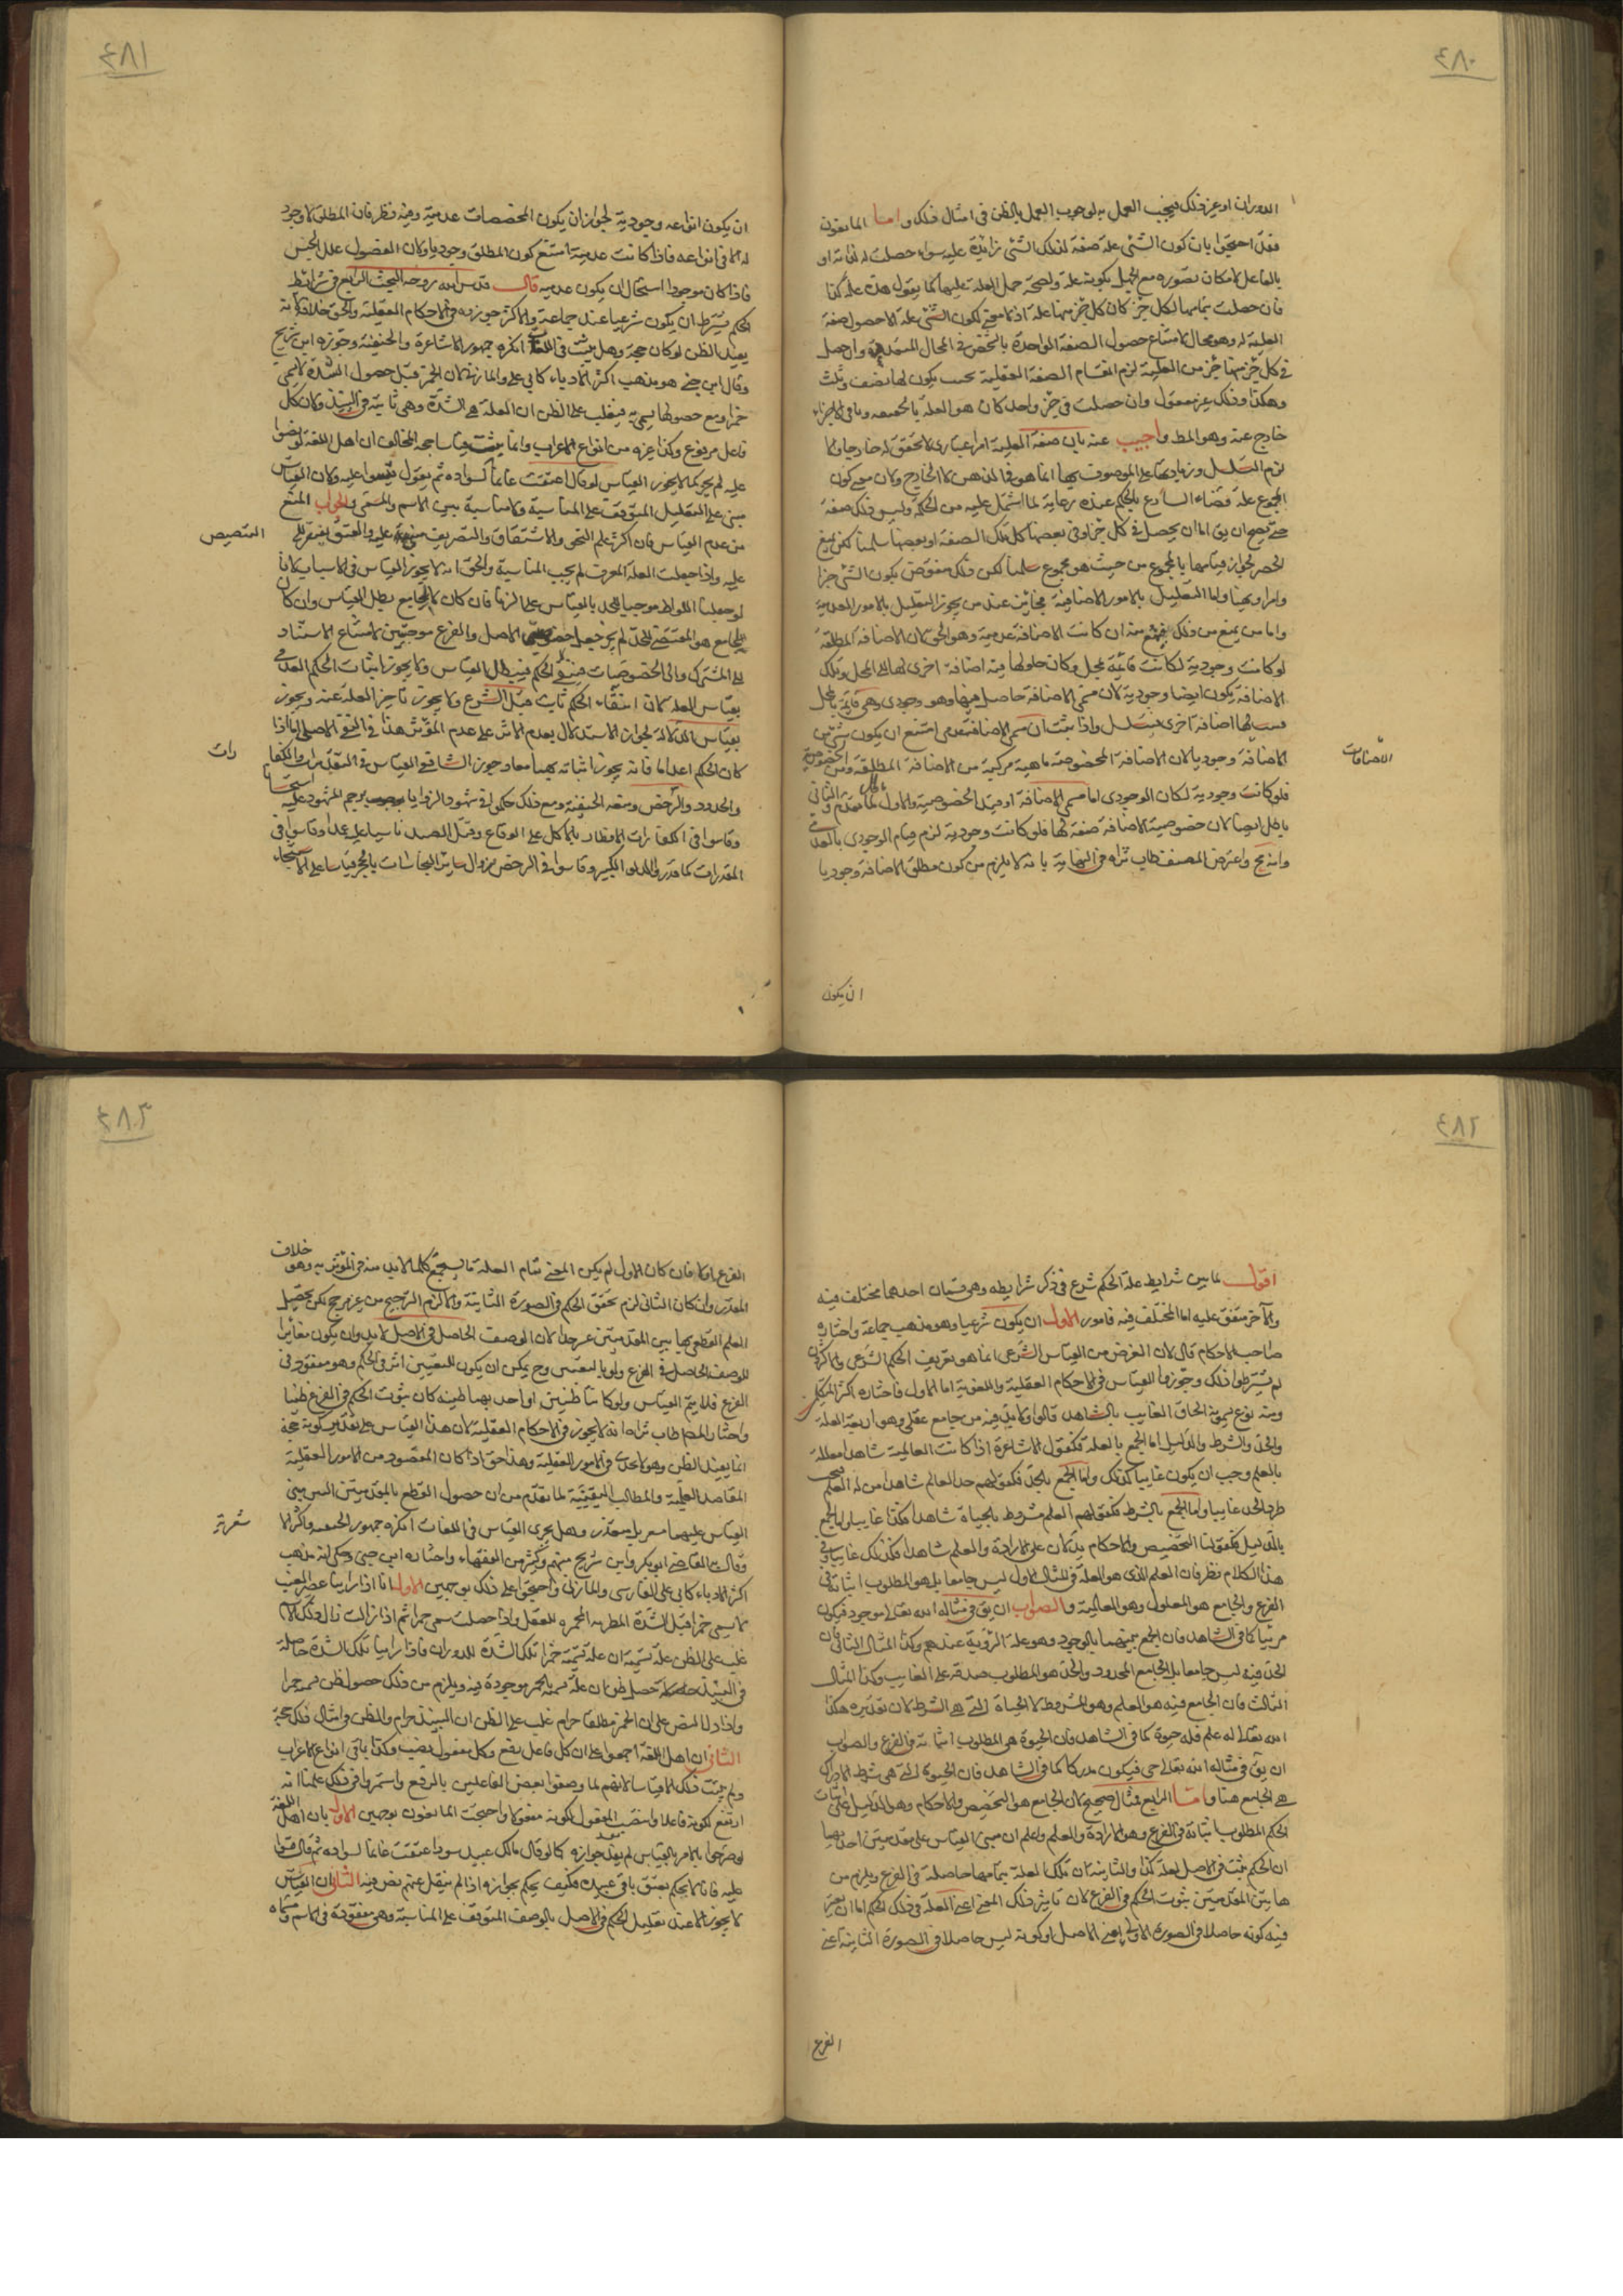 ٤٨٠
الدوران او غير ذلك فيجب العمل به لوجوب العمل بالظن فى امثال ذلك واما المانعون
فقد احتجوا بان كون الشئ علة صفة لذلك الشئ زائدة عليه سواء حصلت له لذاته او
بالفاعل لامكان تصوره مع الجهل بكونه علة ولصحة حمل العلة عليها كما يقول هذه علة كذا
فان حصلت بتمامها لكل جزء كان كل جزء منها علة اذ لا معنى لكون الشئ علة الا حصول صفة
العلية له وهو محال لامتناع حصول الصفة الواحدة بالشخص فى المحال المتعددة وان حصل
فى كل جزء منها جزء من العلية لزم انقسام الصفة العقلية بحيث يكون لها نصف وثلث
وهكذا وذلك غير معقول وان حصلت فى جزء واحد كان هو العلة بالحقيقة وباقى الاجزاء
خارج عنه وهو المط واجيب عنه بان صفة العلية امر اعتبارى لا تحقق له خارجا والا
لزم التسلسل وزيادتها على الموصوف بها انما هو فى الذهن لا الخارج ولان معنى كون
المجموع علة قضاء الشارع بالحكم عنده رعاية لما اشتمل عليه من الحكمة وليس ذلك صفة
حتى يصح ان يق اما ان يحصل فى كل جزء او فى بعضها كل تلك الصفة او بعضها سلمنا لكن نمنع
الحصر لجواز قيامها بالمجموع من حيث هو مجموع سلمنا لكن ذلك منقوض بكون الشئ خبرا
وامرا ونهيا واما التعليل بالامور الاضافية فجائز عند من يجوز التعليل بالامور العدمية
واما من يمنع من ذلك فيمنع منه ان كانت الاضافة عدمية وهو الحق لان الاضافة المطلقة
لو كانت وجودية لكانت قائمة بمحل وكان حلولها فيه اضافة اخرى لها الى المحل وتلك
الاضافة يكون ايضا وجودية لان مسمى الاضافة حاصل فيها وهو وجودى وهى قائمة بمحل
فلها اضافة اخرى فيتسلسل واذا ثبت ان مسمى الاضافة عدمى امتنع ان يكون شئ من
الاضافات
الاضافة وجوديا لان الاضافة المخصوصة ماهية مركبة من الاضافة المطلقة ومن الخصوصية
فلو كانت وجودية لكان الوجودى اما مسمى الاضافة او قيد الخصوصية والاول باطل لما تقدم والثانى
باطل ايضا لان خصوصية الاضافة صفة لها فلو كانت وجودية لزم قيام الوجودى بالعدمى
وانه مح واعترض المصنف طاب ثراه فى النهاية بانه لا يلزم من كون مطلق الاضافة وجوديا
ان يكون
٤٨١
ان يكون انواعه وجودية لجواز ان يكون المخصصات عدمية وفيه نظر فان المطلق لا وجود
له الا فى انواعه فاذا كانت عدمية امتنع كون المطلق وجوديا ولان الفصول علل الجنس
فاذا كان موجودا استحال ان يكون عدمية قال قدس الله روحه البحث الرابع فى شرائط
الحكم يشترط ان يكون شرعيا عند جماعة والاكثر جوزوه فى الاحكام العقلية والحق خلافه لانه
يفيد الظن لو كان حجة وهل يثبت فى اللغات انكره جمهور الاشاعرة والحنفية وجوزه ابن شريح
وقال ابن جنى هو مذهب اكثر الادباء كابى على والمازنى لان الخمر قبل حصول الشدة لا تسمى
خمرا ومع حصولها يسمى به فيغلب على الظن ان العلة هى الشدة وهى ثابتة فى النبيذ ولان كل
فاعل مرفوع وكذا غيره من انواع الاعراب وانما يثبت قياسا حجة المخالف ان اهل اللغة لو نصوا
عليه لم يجز كما لا يجوز القياس لو قال اعتقت غانما لسواده ثم يقول قيسوا عليه ولان القياس
مبنى على التعليل المتوقف على المناسبة ولا مناسبة بين الاسم والمسمى والجواب المنع
التنصيص
من عدم القياس فان اكثر علم النحو والاشتقاق والتصريف مبنى عليه والعتق يفتقر الى
عليه واذا جعلت العلة المعرف لم يجب المناسبة والحق انه لا يجوز القياس فى الاسباب لانا
لو جعلنا اللواط موجبا للحد بالقياس على الزنا فان كان لا لجامع بطل القياس وان كان
لجامع هو المقتضى للحد لم يجز جعل خصوص الاصل والفرع موجبين لامتناع الاستناد
الى المشترك والى الخصوصيات فيبقى الحكم فيبطل القياس ولا يجوز اثبات الحكم العدمى
بقياس العلة لان انتفاء الحكم ثابت قبل الشرع ولا يجوز تاخير العلة عنه ويجوز
بقياس الدلالة لجواز الاستدلال بعدم الاثر على عدم المؤثر هذا فى النفى الاصلى اما اذا
كان الحكم اعداما فانه يجوز اثباته بهما معا وجوز الشافعى القياس فى التقديرات والكفا
رات
والحدود والرخص ومنعه الحنفية ومع ذلك حكموا فى شهود الزوايا بوجوب رجم المشهود عليه استحسانا
وقاسوا فى الكفارات الافطار بالاكل على الوقاع وقتل الصيد ناسيا على عمدا وقاسوا فى
المقدرات كما قدروا للدلو الكبير وقاسوا فى الرخص بزوال سائر النجاسات بالحجر قياسا على الاستنجاء
٤٨٢
اقول لما بين شرايط علة الحكم شرع فى ذكر شرايطه وهى قسمان احدهما مختلف فيه
والآخر متفق عليه اما المختلف فيه فامور الاول ان يكون شرعيا وهو مذهب جماعة واختاره
صاحب الاحكام قال لان الغرض من القياس الشرعى انما هو تعريف الحكم الشرعى والاكثرون
لم يشترطوا ذلك وجوزوا القياس فى الاحكام العقلية واللغوية اما الاول فاختاره اكثر المتكلمين
ومنه نوع يسمونه الحاق الغايب بالشاهد قالوا ولا بد فيه من جامع عقلى وهو اربعة العلة
والحد والشرط والدليل اما الجمع بالعلة فكقول الاشاعرة اذا كانت العالمية شاهدا معللة
بالعلم وجب ان يكون غايبا كذلك واما الجمع بالحد فكقولهم حد العالم شاهدا من له العلم فيجب
طرد الحد غايبا واما الجمع بالشرط فكقولهم العلم مشروط بالحياة شاهدا فكذا غايبا واما الجمع
بالدليل فكقولنا التخصيص والاحكام يدلان على الارادة والعلم شاهدا فكذلك غايبا وفى
هذا الكلام نظر فان العلم الذى هو العلة فى المثال الاول ليس جامعا بل هو المطلوب اثباته فى
الفرع والجامع هو المعلول وهو العالمية والصواب ان يق فى مثاله الله تعالى موجود فيكون
مرئيا كما فى الشاهد فان الجمع بينهما بالوجود وهو علة الرؤية عندهم وكذا المثال الثانى فان
الحد فيه ليس جامعا بل الجامع المحدود والحد هو المطلوب صدقه على الغايب وكذا المثال
الثالث فان الجامع فيه هو العلم وهو المشروط لا الحياة التى هى الشرط لان تقديره هكذا
الله تعالى له علم فله حيوة كما فى الشاهد فان الحيوة هى المطلوب اثباته فى الفرع والصواب
ان يق فى مثاله الله تعالى حى فيكون مدركا كما فى الشاهد فان الحيوة التى هى شرط الادراك
هى الجامع هنا واما الرابع فمثال صحيح لان الجامع هو التخصيص والاحكام وهو الدليل على اثبات
الحكم المطلوب اثباته فى الفرع وهو الارادة والعلم واعلم ان مبنى القياس على مقدمتين احدهما
ان الحكم يثبت فى الاصل لعلة كذا والثانية ان تلك العلة بتمامها حاصلة فى الفرع ويلزم من
هاتين المقدمتين ثبوت الحكم فى الفرع لان تاثير ذلك المعنى اعنى العلة فى ذلك الحكم اما ان يعتبر
فيه كونه حاصلا فى الصورة الاولى يعنى الاصل او كونه ليس حاصلا فى الصورة الثانية اعنى
الفرع
٤٨٣
الفرع اولا فان كان الاول لم يكن المعنى تمام العلة بل مع كلما لابد منه فى المؤثرية وهو خلاف
المقدر وان كان الثانى لزم تحقق الحكم فى الصورة الثانية والا لزم الترجيح من غير مرجح لكن تحصيل
العلم القطعى بهاتين المقدمتين عسر جدا لان الوصف الحاصل فى الاصل لابد وان يكون مغايرا
للوصف الحاصل فى الفرع ولو بالتعين وح يمكن ان يكون للتعيين اثر فى الحكم وهو مفقود فى
الفرع فلا يتم القياس ولو كانتا ظنيتين او احديهما ظنية كان ثبوت الحكم فى الفرع ظنيا
واختار المصنف طاب ثراه انه لا يجوز فى الاحكام العقلية لان هذا القياس على تقدير كونه حجة
انما يفيد الظن وهو لا يجدى فى الامور العقلية وهذا حق اذا كان المقصود من الامور العقلية
المقاصد العلمية والمطالب اليقينية لما تقدم من ان حصول القطع بالمقدمتين اللتين يبنى
القياس عليهما متعسر بل متعذر وهل يجرى القياس فى اللغات انكره جمهور الحنفية واكثر الا
شعرية
وقال به القاضى ابو بكر وابن شريح منهم وكثير من الفقهاء واختاره ابن جنى وحكى انه مذهب
اكثر الادباء كابى على الفارسى والمازنى واحتجوا على ذلك بوجهين الاول انا اذا راينا عصير العنب
لا يسمى خمرا قبل الشدة المطربة المخمرة للعقل واذا حصلت سمى خمرا ثم اذا زالت زال ذلك الاسم
غلب على الظن ان علة تسميته خمرا تلك الشدة للدوران فاذا راينا تلك الشدة حاصلة
فى النبيذ حصل ظن ان علة تسميته بالخمر موجودة فيه ويلزم من ذلك حصول ظن تسميته خمرا
واذا دلنا النص على ان الخمر مطلقا حرام غلب على الظن ان النبيذ حرام والظن فى امثال ذلك حجة
الثانى ان اهل اللغة اجمعوا على ان كل فاعل رفع وكل مفعول نصب وكذا باقى انواع الاعراب
ولم يثبت ذلك الا قياسا لانهم لما وصفوا بعض الفاعلين بالرفع واستمروا فى ذلك علمنا انه
ارتفع لكونه فاعلا وانتصب المفعول لكونه مفعولا واحتجت المانعون بوجهين الاول بان اهل اللغة
لو صرحوا بالامر بالقياس لم يفد جوازه كما لو قال مالك عبيد سود اعتقت غانما لسواده ثم قال قيسوا
عليه فانا لا نحكم بعتق باقى عبيده فكيف يحكم بجوازه اذا لم ينقل عنهم نص فيه الثانى ان القياس
لا يجوز الا عند تعليل الحكم فى الاصل بالوصف المتوقف على المناسبة وهى مفقودة فى الاسم ومسماه